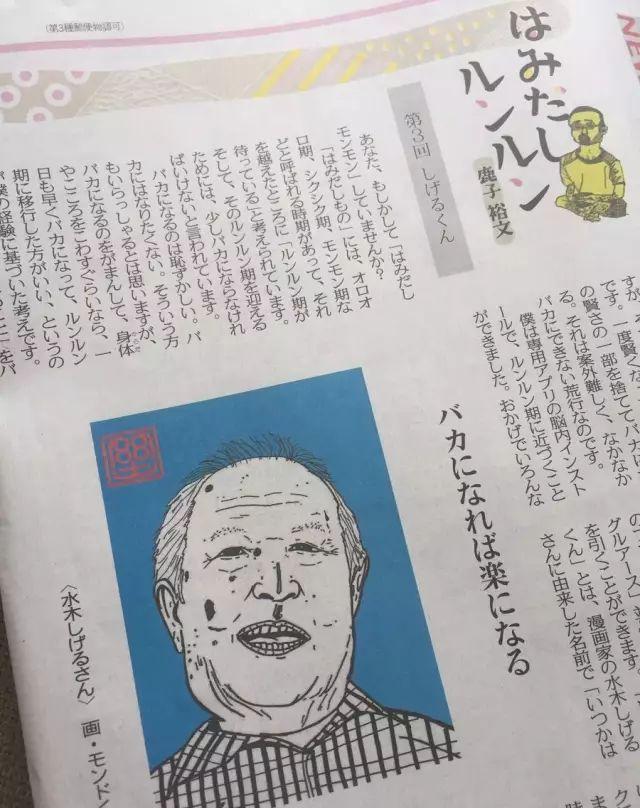 (第3種郵便物認可)
はみだし
ルンルン
鹿子 裕文
第3回 しげるくん
あなた、もしかして「はみだし
モンモン」していませんか?
「はみだしもの」には、オロオ
ロ期、シクシク期、モンモン期な
どと呼ばれる時期があって、それ
を越えたところに「ルンルン期が
待っていると考えられています。
そして、そのルンルン期を迎える
ためには、少しバカにならなけれ
ばいけないと言われています。
バカになるのは恥ずかしい。バ
カにはなりたくない。そういう方
もいらっしゃるとは思いますが、
バカになるのをがまんして、身体
やこころをこわすぐらいなら、一
日も早くバカになって、ルンルン
期に移行した方がいい、というの
が僕の経験に基づいた考えです。
すが、
です。一度賢く
の賢さの一部を捨てて
る。それは案外難しく、なかなか
バカにできない荒行なのです。
僕は専用アプリの脳内インスト
ールで、ルンルン期に近づくこと
ができました。おかげでいろんな
バカになれば楽になる
グルアース」
を引くことができます
くん」とは、漫画家の水木しげる
さんに由来した名前で「いつかは
88
〈水木しげるさん〉 画・モンドン